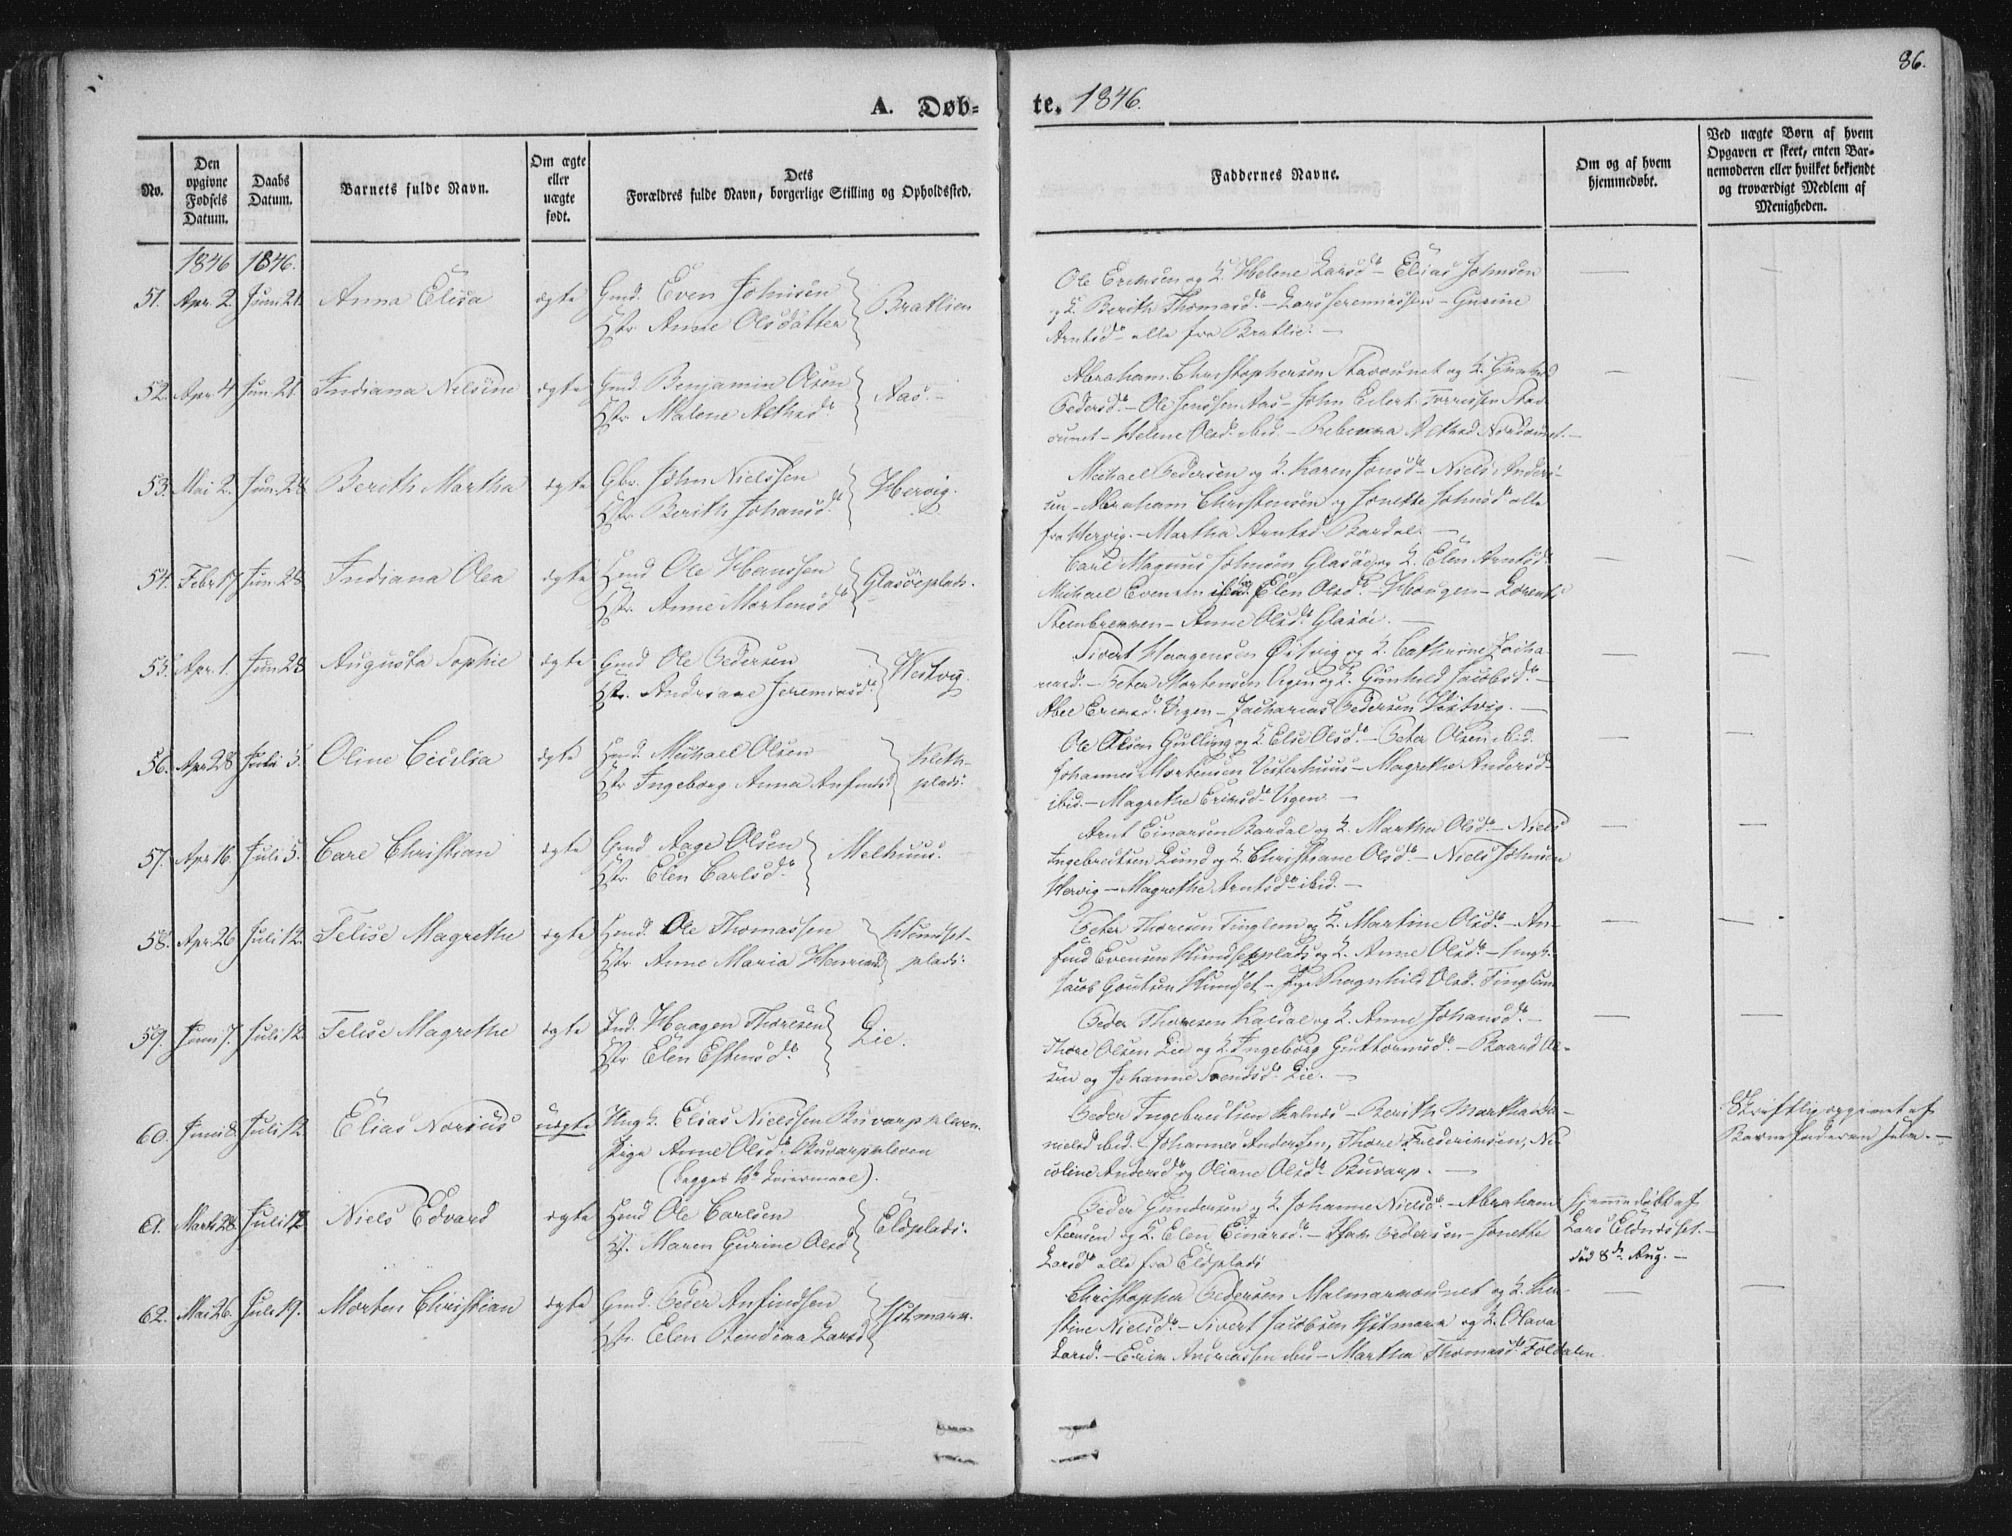 86.
A. Døb=
te. 1846.
No.
Den opgivne Fødsels Datum.
Daabs Datum.
Barnets fulde Navn.
Om ægte eller uægte født.
Dets
Forældres fulde Navn, borgerlige Stilling og Opholdssted.
Faddernes Navne.
Om og af hvem hjemmedøbt.
Ved uægte Børn af hvem Opgaven er skeet, enten Bar=nemoderen eller hvilket bekjendt og troværdigt Medlem af Menigheden.
1846 1846.
51. Apr. 2. Jun. 21. Anna Elisa ægte Gmd. Even Johnsen
Hstr. Anne Olsdatter } Bratlien
Ole Ericksen og K. Helene Larsd. - Elias Johnsen
og K. Berith Thomasd. - Lars Jeremiassen - Gurine
Arntsd. alle fra Bratlie. -
52. Apr. 4 Jun. 21. Indiana Nelsine ægte Gmd. Benjamin Olsen
Hstr. Malene Alexsd. } Aas. -
Abraham Christophersen Stavrunet og K. Gunhild
Pedersd. - Ole Jonssen Aas - John Eilert Torresen Stav
runet - Helene Olsd. ibid. -
53. Mai 2. Jun. 28 Berith Martha ægte Gbr. John Nielssen
Hstr. Berith Johansd. } Hervig.
Michael Pedersen og K. Karen Jonsd. - Niels Ander-
sen - Abraham Christensen og Jonette Johnsd. alle
fra Hervig. - Martha Arntsd. Bardal. -
54. Febr. 17 Jun. 28. Indiana Olea ægte Hmd Ole Hanssen
Hstr. Anne Mortensd. } Glasöeplads.
Carl Magnus Johnsen Glasöe og K. Elen Arntsd.
Michael Evensen ibid. Elen Olsd. - Haugen - Lorents
Steenbrekken - Anne Olsd. Glasöe. -
55. Apr. 1. Jun. 28 Augusta Sophie ægte Gmd Ole Pedersen
Hstr. Andreane Jeremiasd. } Westvig.
Sivert Haagensen Östvig og K. Cathrine Zacha
riasd. - Peter Mortensen Vigen og K. Gunhild Jacobsd. -
Abel Ericksd. Vigen - Zacharias Pedersen Westvig. -
56. Apr. 28 Juli 5. Oline Cecilia ægte Hmd. Michael Olsen
Hstr Ingeborg Anna Anfindsd. } Kleth-
plads.
Ole Olsen Gulling og K. Else Olsd. - Peter Olsen ibid.
Johannes Mortensen Vesterhuus - Magrethe Andersd.
ibid. - Magrethe Ericksd. Vigen -
57. Apr. 16. Juli 5. Carl Christian ægte Gmd Aage Olsen
Hstr. Elen Carlsd. } Melhuus.
Arnt Einarsen Bardal og K. Martha Olsd. - Niels
Ingebretsen Lund og K. Christiane Olsd. - Niels Johnsen
Hervig - Magrethe Arntsd. ibid. -
58. Apr. 26 Juli 12. Felise Magrethe ægte Hmd. Ole Thomassen
Hstr. Anne Maria Henricksd. } Hundset-
plads.
Peter Thoresen Tinglem og K. Martine Olsd. - An-
find Evensen Hundsetplads og K. Anne Olsd. - Ungk.
Jacob Hundset - Pige Ragnhild Olsd. Tinglem
59. Juni 7. Juli 12. Felise Magrethe ægte Ind. Haagen Thoresen
Hstr. Elen Estensd. } Lie.
Peder Thoresen Kaldal og K. Anne Johansd. -
Thore Olsen Lie og K. Ingeborg Guttormsd. - Baard Ol-
sen og Johanne Svendsd. Lie. -
60. Juni 8. Juli 12 Elias Norius uægte Ungk. Elias Nielssen Buvarpkleven.
Pige Anne Olsd. Buvarpkleven
(begges 1ste Leiermaal).
Peder Ingebretsen - Berith Martha Da-
nielsd. ibid. Johannes Anderssen, Thore Frederiksen, Ni-
coline Andersd. og Oliane Olsd. Buvarp. -
Skriftlig opgivet af
Barnefaderen selv. -
61. Marts 28. Juli 12 Niels Edvard ægte Hmd Ole Carlsen
H. Maren Gurine Olsd. } Eldplads.
Peder Gundersen og K. Johanne Nielsd. - Abraham
Steensen og K. Elen Einarsd. - Isak Pedersen - Jonette
Larsd. alle fra Eldplads
Hjemmedøbt af
Lars Eldnesset. -
död 8de Aug. -
62. Mai 26. Juli 19. Morten Christian ægte Gmd. Peder Anfindsen
Hstr. Elen Dindema Larsd. } Hstmark.
Christopher Pedersen Malmarmounet og K. Kir-
stine Nielsd. - Sivert Jacobsen Hstmark og K. Olava
Larsd. - Erik Andreassen ibid - Martha Thomasd. Foldalen.